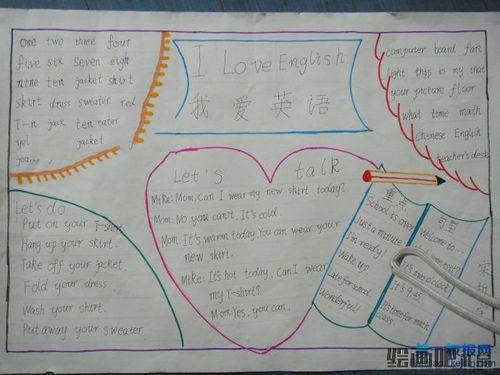 I Love English
我爱英语
one two three four
five six seven eigh
nine ten jacket shirt
skirt dress sweater red
T-n jack ten eater
yel jacket
computer board fan
light this is my that
your picture floor
what time math
Chinese English
teacher's desk
Let's talk
Mike: Mom, Can I wear my new shirt today?
Mom: No you can't. It's cold
Mom: It's warm today. You can wear your
new skirt.
Mike: It's hot today, Can I wear
my T-shirt?
Mom: Yes, you can.
Let's do
Put on your T-shirt
Hang up your skirt.
Take off your jacket.
Fold your dress
Wash your shirt.
Put away your sweater
重点
School is over
Just a minute
I'm ready!
Wake up
Late for school
Wonderful!
句型
Welcome to
It's 9:45
It's time for math
class.
绘画吧